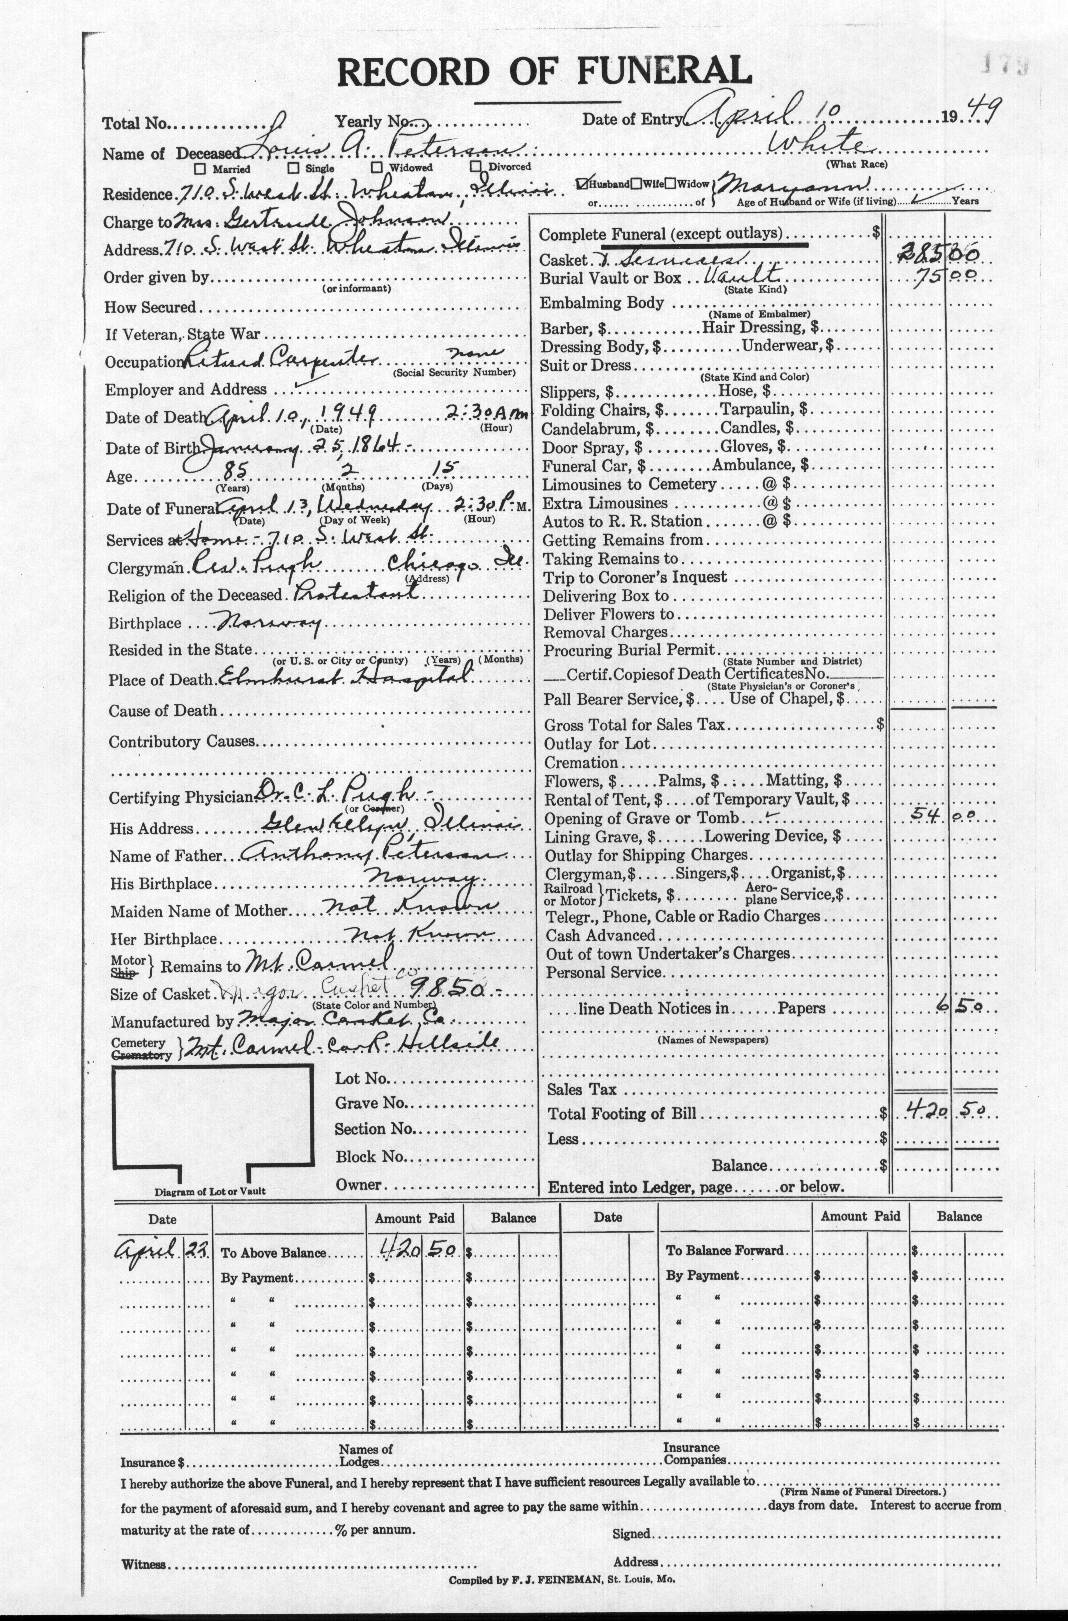 179
RECORD OF FUNERAL
Total No. Yearly No. Date of Entry April 10 1949
Name of Deceased Louis A. Peterson White
(What Race)
☐ Married ☐ Single ☐ Widowed ☐ Divorced
Residence 710 S. West St. Wheaton, Illinois ☑Husband☐Wife☐Widow} Maryann
or of Age of Husband or Wife (if living) Years
Charge to Mrs. Gertrude Johnson
Address 710 S. West St. Wheaton Illinois
Order given by
(or informant)
How Secured
If Veteran, State War
Occupation Retired Carpenter none
(Social Security Number)
Employer and Address
Date of Death April 10, 1949 2:30 AM
(Date) (Hour)
Date of Birth January 25, 1864
Age 85 2 15
(Years) (Months) (Days)
Date of Funeral April 13, Wednesday 2:30 P.M.
(Date) (Day of Week) (Hour)
Services at Home - 710 S. West St.
Clergyman Rev. Pugh Chicago Ill
(Address)
Religion of the Deceased Protestant
Birthplace Norway
Resided in the State
(or U. S. or City or County) (Years) (Months)
Place of Death Elmhurst Hospital
Cause of Death
Contributory Causes
Certifying Physician Dr. C. L. Pugh
(or Coroner)
His Address Glen Ellyn, Illinois
Name of Father Anthony Peterson
His Birthplace Norway
Maiden Name of Mother Not Known
Her Birthplace Not Known
Motor
Ship } Remains to Mt. Carmel
Size of Casket Major Casket Co 9850 -
(State Color and Number)
Manufactured by Major Casket Co.
Cemetery
Crematory } Mt. Carmel - Hillside
Lot No.
Grave No.
Section No.
Block No.
Owner
Diagram of Lot or Vault
Complete Funeral (except outlays) $
Casket & Services 285 00
Burial Vault or Box Vault 75 00
(State Kind)
Embalming Body
(Name of Embalmer)
Barber, $ Hair Dressing, $
Dressing Body, $ Underwear, $
Suit or Dress
(State Kind and Color)
Slippers, $ Hose, $
Folding Chairs, $ Tarpaulin, $
Candelabrum, $ Candles, $
Door Spray, $ Gloves, $
Funeral Car, $ Ambulance, $
Limousines to Cemetery @ $
Extra Limousines @ $
Autos to R. R. Station @ $
Getting Remains from
Taking Remains to
Trip to Coroner's Inquest
Delivering Box to
Deliver Flowers to
Removal Charges
Procuring Burial Permit
(State Number and District)
Certif. Copies of Death Certificates No.
(State Physician's or Coroner's
Pall Bearer Service, $ Use of Chapel, $
Gross Total for Sales Tax $
Outlay for Lot
Cremation
Flowers, $ Palms, $ Matting, $
Rental of Tent, $ of Temporary Vault, $
Opening of Grave or Tomb 54 00
Lining Grave, $ Lowering Device, $
Outlay for Shipping Charges
Clergyman, $ Singers, $ Organist, $
Railroad
or Motor } Tickets, $ Aero-
plane Service, $
Telegr., Phone, Cable or Radio Charges
Cash Advanced
Out of town Undertaker's Charges
Personal Service
line Death Notices in Papers 6 50
(Names of Newspapers)
Sales Tax
Total Footing of Bill $ 420 50
Less $
Balance $
Entered into Ledger, page or below.
Date Amount Paid Balance Date Amount Paid Balance
April 22 To Above Balance 420 50 $ To Balance Forward $
By Payment $ $ By Payment $ $
“ “ $ $ “ “ $ $
“ “ $ $ “ “ $ $
“ “ $ $ “ “ $ $
“ “ $ $ “ “ $ $
“ “ $ $ “ “ $ $
“ “ $ $ “ “ $ $
Insurance $ Names of Lodges Insurance Companies
I hereby authorize the above Funeral, and I hereby represent that I have sufficient resources Legally available to
(Firm Name of Funeral Directors.)
for the payment of aforesaid sum, and I hereby covenant and agree to pay the same within days from date. Interest to accrue from
maturity at the rate of % per annum.
Signed
Witness Address
Compiled by F. J. FEINEMAN, St. Louis, Mo.